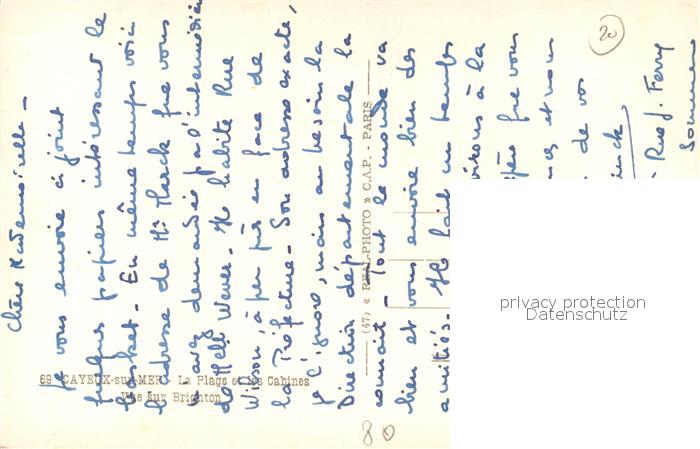 Chère Mademoiselle -
Je vous envoie ci joint
quelques papiers intéressant le
basket - En même temps voici
l'adresse de Mr Harck que vous
avez demandée par l'intermédiaire
de Melle Wever - Il habite Rue
Wilson, à peu près en face de
la Préfecture - Son adresse exacte,
je l'ignore, mais au besoin la
Direction départementale la
connait - Tout le monde va
bien et vous envoie bien des
amitiés. Il fait un temps
à la
que vous
et nous
de vos
Rue J. Ferry
20
80
69 CAYEUX-sur-MER - La Plage et les Cabines
Vue sur Brighton
(47) « REAL-PHOTO » C.A.P. - PARIS
privacy protection
Datenschutz